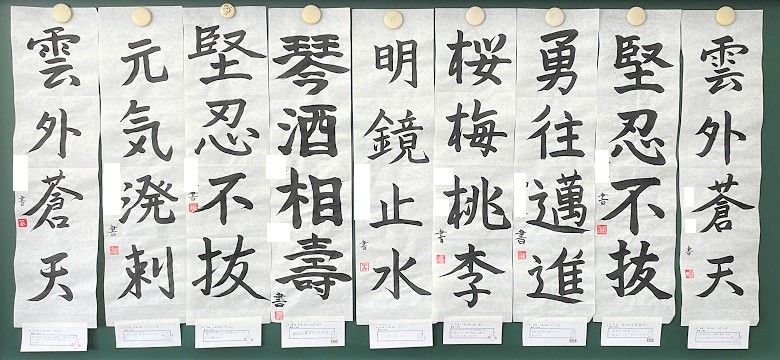 雲外蒼天
書
堅忍不抜
書
勇往邁進
書
桜梅桃李
書
明鏡止水
書
琴酒相壽
書
堅忍不抜
書
元気溌剌
書
雲外蒼天
書